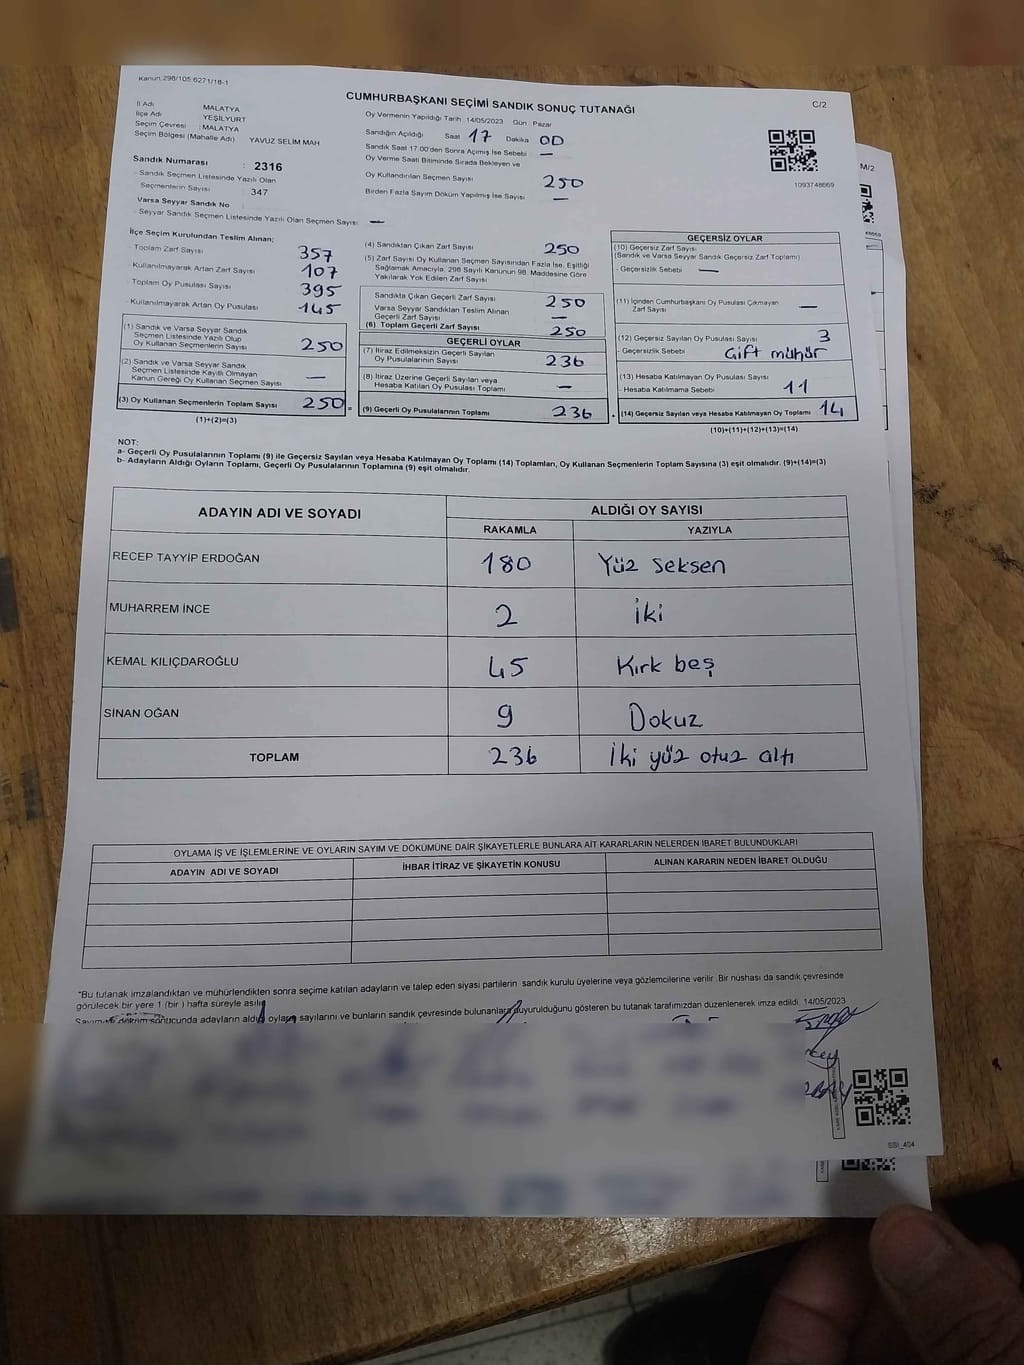 Kanun:298/105:6271/18-1
CUMHURBAŞKANI SEÇİMİ SANDIK SONUÇ TUTANAĞI
C/2
İl Adı MALATYA
İlçe Adı YEŞİLYURT
Seçim Çevresi : MALATYA
Seçim Bölgesi (Mahalle Adı) YAVUZ SELİM MAH
Sandık Numarası : 2316
Sandık Seçmen Listesinde Yazılı Olan
Seçmenlerin Sayısı : 347
Varsa Seyyar Sandık No
Seyyar Sandık Seçmen Listesinde Yazılı Olan Seçmen Sayısı —
Oy Vermenin Yapıldığı Tarih :14/05/2023 Gün : Pazar
Sandığın Açıldığı Saat 17 Dakika 00
Sandık Saat 17.00'den Sonra Açımış İse Sebebi —
Oy Verme Saati Bitiminde Sırada Bekleyen ve
Oy Kullandırılan Seçmen Sayısı 250
Birden Fazla Sayım Döküm Yapılmış İse Sayısı —
1093748669
M/2
İlçe Seçim Kurulundan Teslim Alınan;
Toplam Zarf Sayısı 357
Kullanılmayarak Artan Zarf Sayısı 107
Toplam Oy Pusulası Sayısı 395
Kullanılmayarak Artan Oy Pusulası 145
(1) Sandık ve Varsa Seyyar Sandık
Seçmen Listesinde Yazılı Olup
Oy Kullanan Seçmenlerin Sayısı 250
(2) Sandık ve Varsa Seyyar Sandık
Seçmen Listesinde Kayıtlı Olmayan
Kanun Gereği Oy Kullanan Seçmen Sayısı —
(3) Oy Kullanan Seçmenlerin Toplam Sayısı 250 =
(1)+(2)=(3)
(4) Sandıktan Çıkan Zarf Sayısı 250
(5) Zarf Sayısı Oy Kullanan Seçmen Sayısından Fazla İse, Eşitliği
Sağlamak Amacıyla, 298 Sayılı Kanunun 98. Maddesine Göre
Yakılarak Yok Edilen Zarf Sayısı
Sandıkta Çıkan Geçerli Zarf Sayısı 250
Varsa Seyyar Sandıktan Teslim Alınan
Geçerli Zarf Sayısı —
(6) Toplam Geçerli Zarf Sayısı 250
GEÇERLİ OYLAR
(7) İtiraz Edilmeksizin Geçerli Sayılan
Oy Pusulalarının Sayısı 236
(8) İtiraz Üzerine Geçerli Sayılan veya
Hesaba Katılan Oy Pusulası Toplamı —
(9) Geçerli Oy Pusulalarının Toplamı 236
GEÇERSİZ OYLAR
(10) Geçersiz Zarf Sayısı
(Sandık ve Varsa Seyyar Sandık Geçersiz Zarf Toplamı)
- Geçersizlik Sebebi —
(11) İçinden Cumhurbaşkanı Oy Pusulası Çıkmayan
Zarf Sayısı —
(12) Geçersiz Sayılan Oy Pusulası Sayısı 3
- Geçersizlik Sebebi Çift mühür
(13) Hesaba Katılmayan Oy Pusulası Sayısı
- Hesaba Katılmama Sebebi 11
(14) Geçersiz Sayılan veya Hesaba Katılmayan Oy Toplamı 14
(10)+(11)+(12)+(13)=(14)
NOT:
a- Geçerli Oy Pusulalarının Toplamı (9) ile Geçersiz Sayılan veya Hesaba Katılmayan Oy Toplamı (14) Toplamları, Oy Kullanan Seçmenlerin Toplam Sayısına (3) eşit olmalıdır. (9)+(14)=(3)
b- Adayların Aldığı Oyların Toplamı, Geçerli Oy Pusulalarının Toplamına (9) eşit olmalıdır.
ADAYIN ADI VE SOYADI ALDIĞI OY SAYISI
RAKAMLA YAZIYLA
RECEP TAYYİP ERDOĞAN 180 Yüz Seksen
MUHARREM İNCE 2 İki
KEMAL KILIÇDAROĞLU 45 Kırk beş
SİNAN OĞAN 9 Dokuz
TOPLAM 236 İki yüz otuz altı
OYLAMA İŞ VE İŞLEMLERİNE VE OYLARIN SAYIM VE DÖKÜMÜNE DAİR ŞİKAYETLERLE BUNLARA AİT KARARLARIN NELERDEN İBARET BULUNDUKLARI
ADAYIN ADI VE SOYADI İHBAR İTİRAZ VE ŞİKAYETİN KONUSU ALINAN KARARIN NEDEN İBARET OLDUĞU
*Bu tutanak imzalandıktan ve mühürlendikten sonra seçime katılan adayların ve talep eden siyasi partilerin sandık kurulu üyelerine veya gözlemcilerine verilir. Bir nüshası da sandık çevresinde
görülecek bir yere 1 (bir ) hafta süreyle asılır.
Sayım ve döküm sonucunda adayların aldığı oyların sayılarını ve bunların sandık çevresinde bulunanlara duyurulduğunu gösteren bu tutanak tarafımızdan düzenlenerek imza edildi. 14/05/2023
SSİ_404